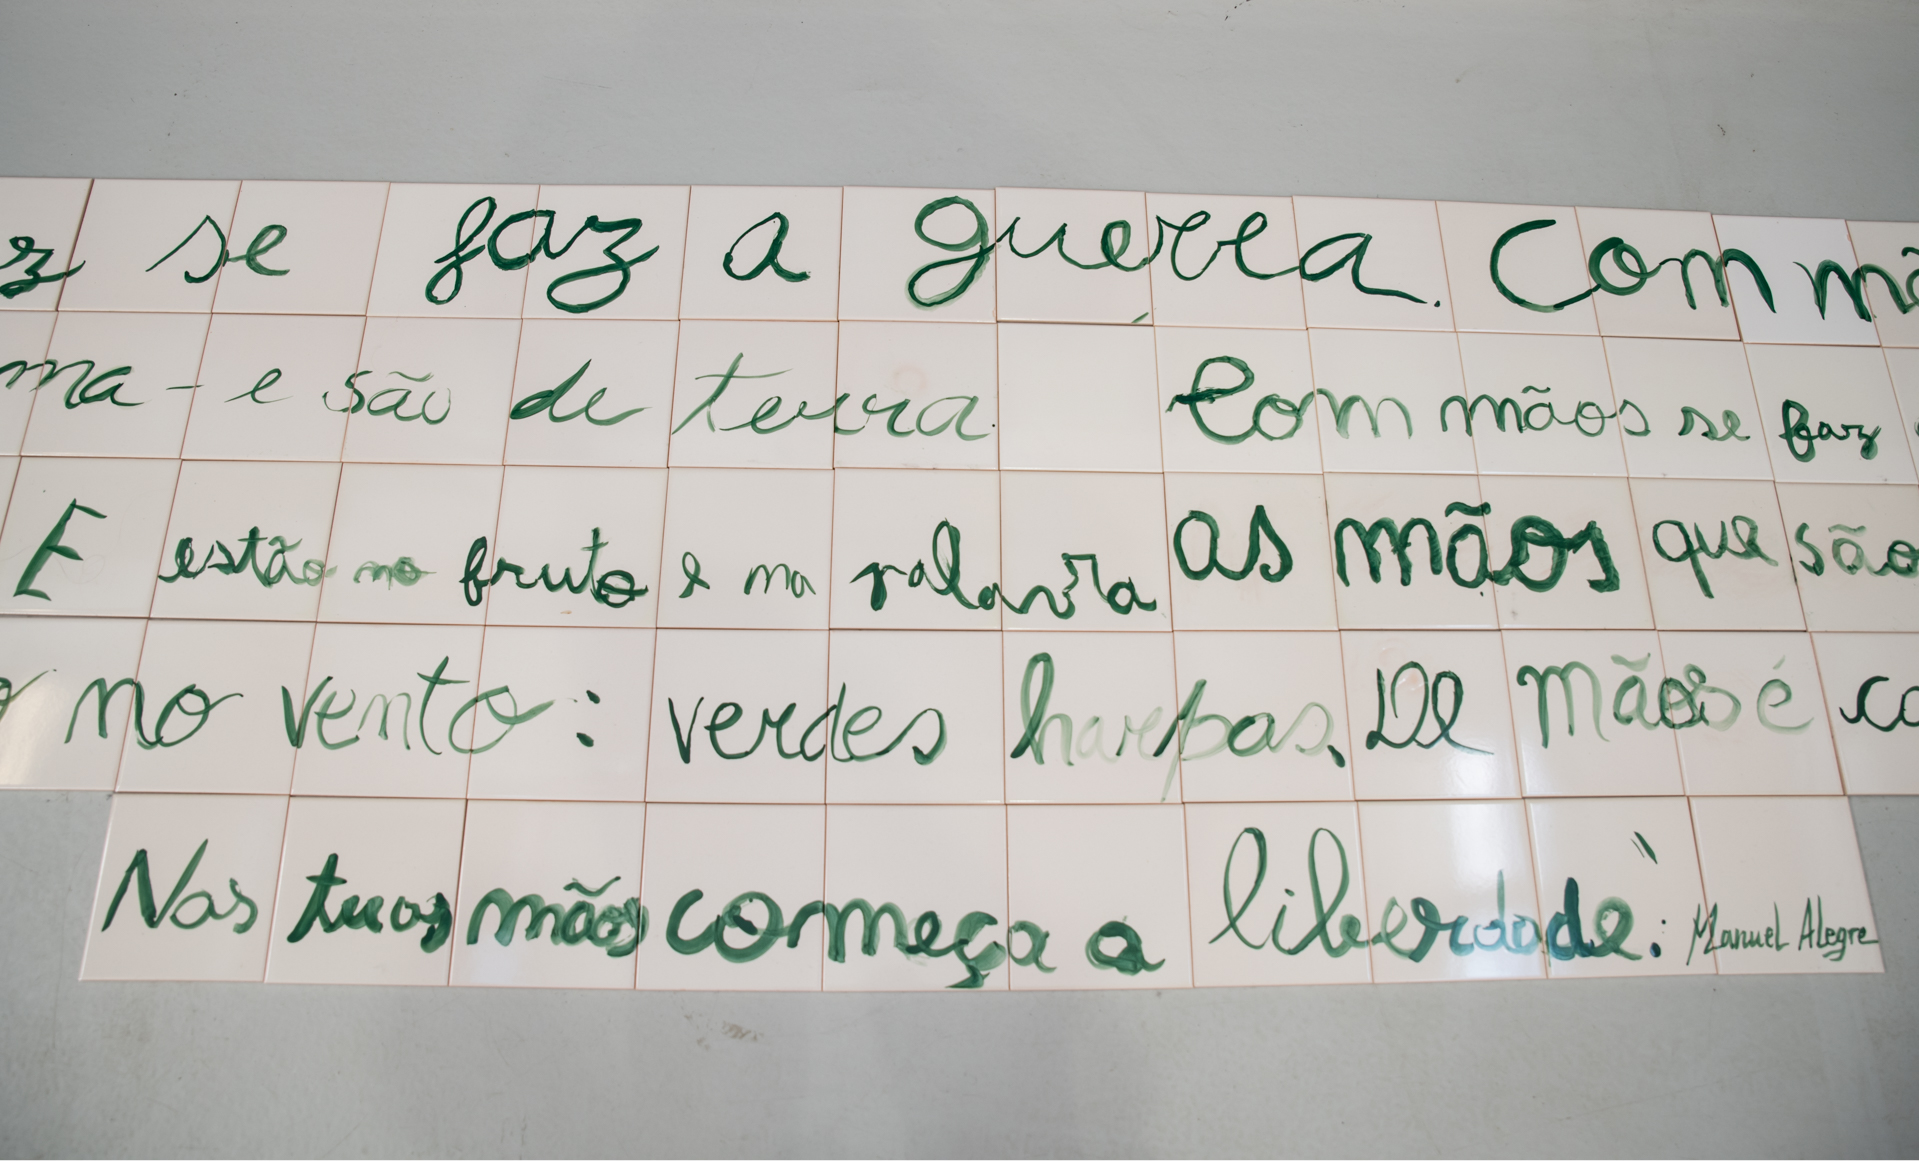 z se faz a guerra. Com mã
ma - e são de terra. Com mãos se faz
E estão no fruto e na palavra as mãos que são
no vento: verdes harpas. De mãos é co
Nas tuas mãos começa a liberdade. Manuel Alegre